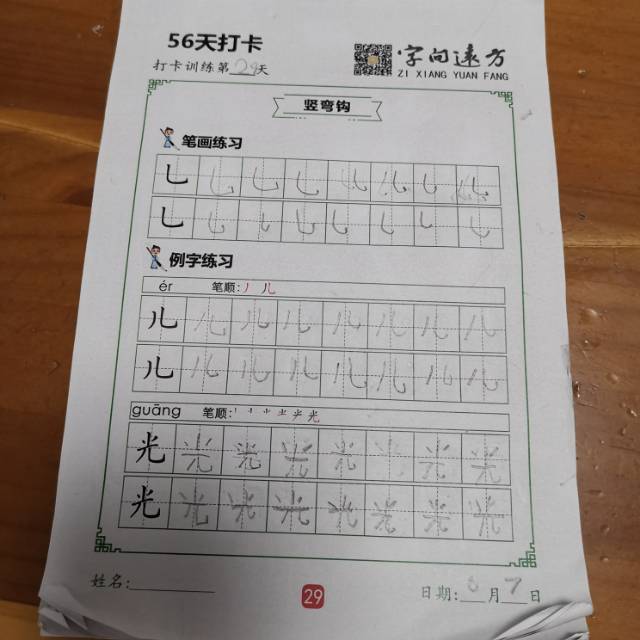 56天打卡
打卡训练第29天
字向远方
ZI XIANG YUAN FANG
竖弯钩
笔画练习
乚 乚 乚 乚 乚 儿 乚 乚
乚 乚 乚 乚 乚 乚 乚 乚
例字练习
ér 笔顺:丿 儿
儿 儿 儿 儿 儿 儿 儿 儿
儿 儿 儿 儿 儿 儿 儿 儿
guāng 笔顺:丨 光
光 光 光 光 光 光 光
光 光 光 光 光 光 光 光
姓名:
29
日期: 8 月 7 日